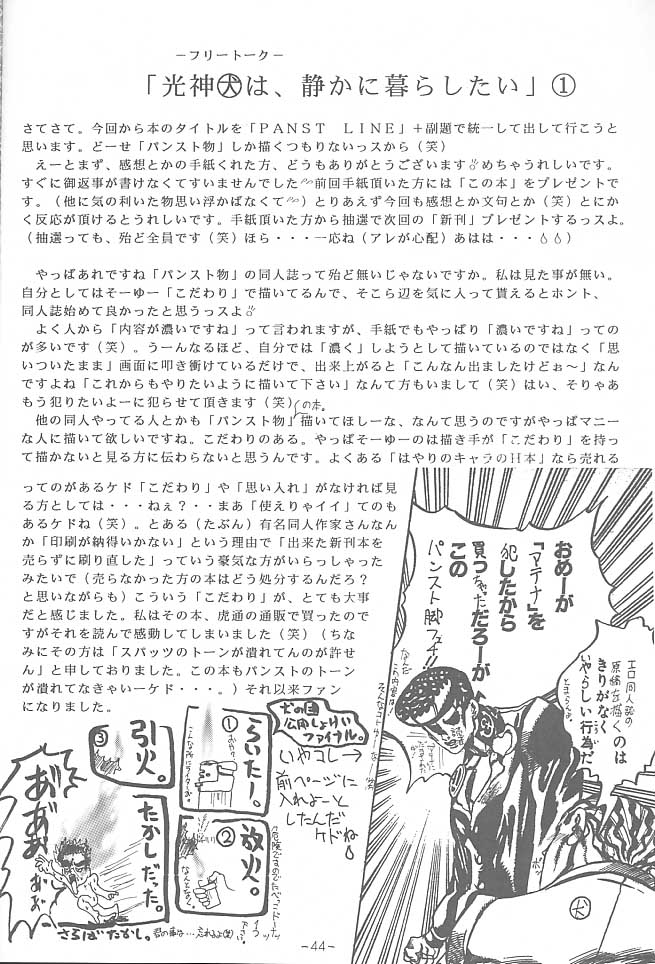 －フリートーク－
「光神㊛は、静かに暮らしたい」①
さてさて。今回から本のタイトルを「ＰＡＮＳＴ　ＬＩＮＥ」＋副題で統一して出して行こうと
思います。どーせ「パンスト物」しか描くつもりないっスから（笑）
えーとまず、感想とかの手紙くれた方、どうもありがとうございます。めちゃうれしいです。
すぐに御返事が書けなくてすいませんでした 前回手紙頂いた方には「この本」をプレゼントで
す。（他に気の利いた物思い浮かばなくて）とりあえず今回も感想とか文句とか（笑）とにか
く反応が頂けるとうれしいです。手紙頂いた方から抽選で次回の「新刊」プレゼントするっスよ。
（抽選っても、殆ど全員です（笑）ほら・・・一応ね（アレが心配）あはは・・・）
やっぱあれですね「パンスト物」の同人誌って殆ど無いじゃないですか。私は見た事が無い。
自分としてはそーゆー「こだわり」で描いてるんで、そこら辺を気に入って貰えるとホント、
同人誌始めて良かったと思うっスよ
よく人から「内容が濃いですね」って言われますが、手紙でもやっぱり「濃いですね」っての
が多いです（笑）。うーんなるほど、自分では「濃く」しようとして描いているのではなく「思
いついたまま」画面に叩き衝けているだけで、出来上がると「こんなん出ましたけどぉ～」なん
ですよね「これからもやりたいように描いて下さい」なんて方もいまして（笑）はい、そりゃあ
もう犯りたいよーに犯らせて頂きます（笑）
の本。
他の同人やってる人とかも「パンスト物」描いてほしーな、なんて思うのですがやっぱマニー
な人に描いて欲しいですね。こだわりのある。やっぱそーゆーのは描き手が「こだわり」を持っ
て描かないと見る方に伝わらないと思うんです。よくある「はやりのキャラのＨ本」なら売れる
ってのがあるケド「こだわり」や「思い入れ」がなければ見
る方としては・・・ねぇ？・・まあ「使えりゃイイ」てのも
あるケドね（笑）。とある（たぶん）有名同人作家さんなん
か「印刷が納得いかない」という理由で「出来た新刊本を
売らずに刷り直した」っていう豪気な方がいらっしゃった
みたいで（売らなかった方の本はどう処分するんだろ？
と思いながらも）こういう「こだわり」が、とても大事
だと感じました。私はその本、虎通の通販で買ったので
すがそれを読んで感動してしまいました（笑）（ちな
みにその方は「スパッツのトーンが潰れてんのが許せ
ん」と申しておりました。この本もパンストのトーン
が潰れてなきゃいーケド・・・。）それ以来ファン
になりました。
おめーが
『アテナ』を
犯したから
買っちゃっただろーが
この
パンスト脚フェチ!!
エロ同人誌の
原稿を描くのは
きりがなく
いやらしい行為だ
犬の国
公開しょけい
ファイナル。
いやコレ→
前ページに
入れよーと
したんだ
ケドね
①
らいたー。
②
放火。
③
引火。
たかしだった。
さらばたかし。
犬
－44－